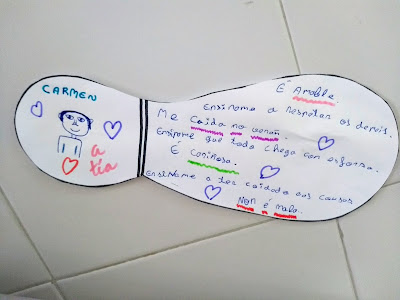 CARMEN
a
tía
É Amable.
Ensíñame a respetar os demais.
Me Coida no verán.
Ensíñame que todo chega con esforzo.
É Cariñosa.
Ensíñame a ter coidado coas cousas
Non é mala.